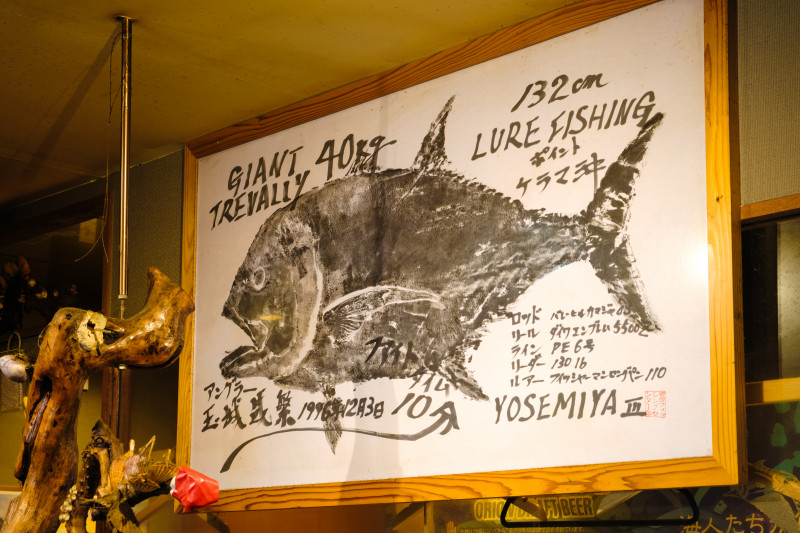 GIANT 40kg
TREVALLY
132cm
LURE FISHING
ポイント
ケラマ沖
ロッド
リール ダイワエンブレム5500Z
ライン PE6号
リーダー 130 lb
ルアー フィッシャーマンロングペン 110
ファイト
タイム
10分
アングラー
玉城 茂 繁
1996年12月3日
YOSEMIYA III
ORIGINAL DRAFT BEER
海人たち